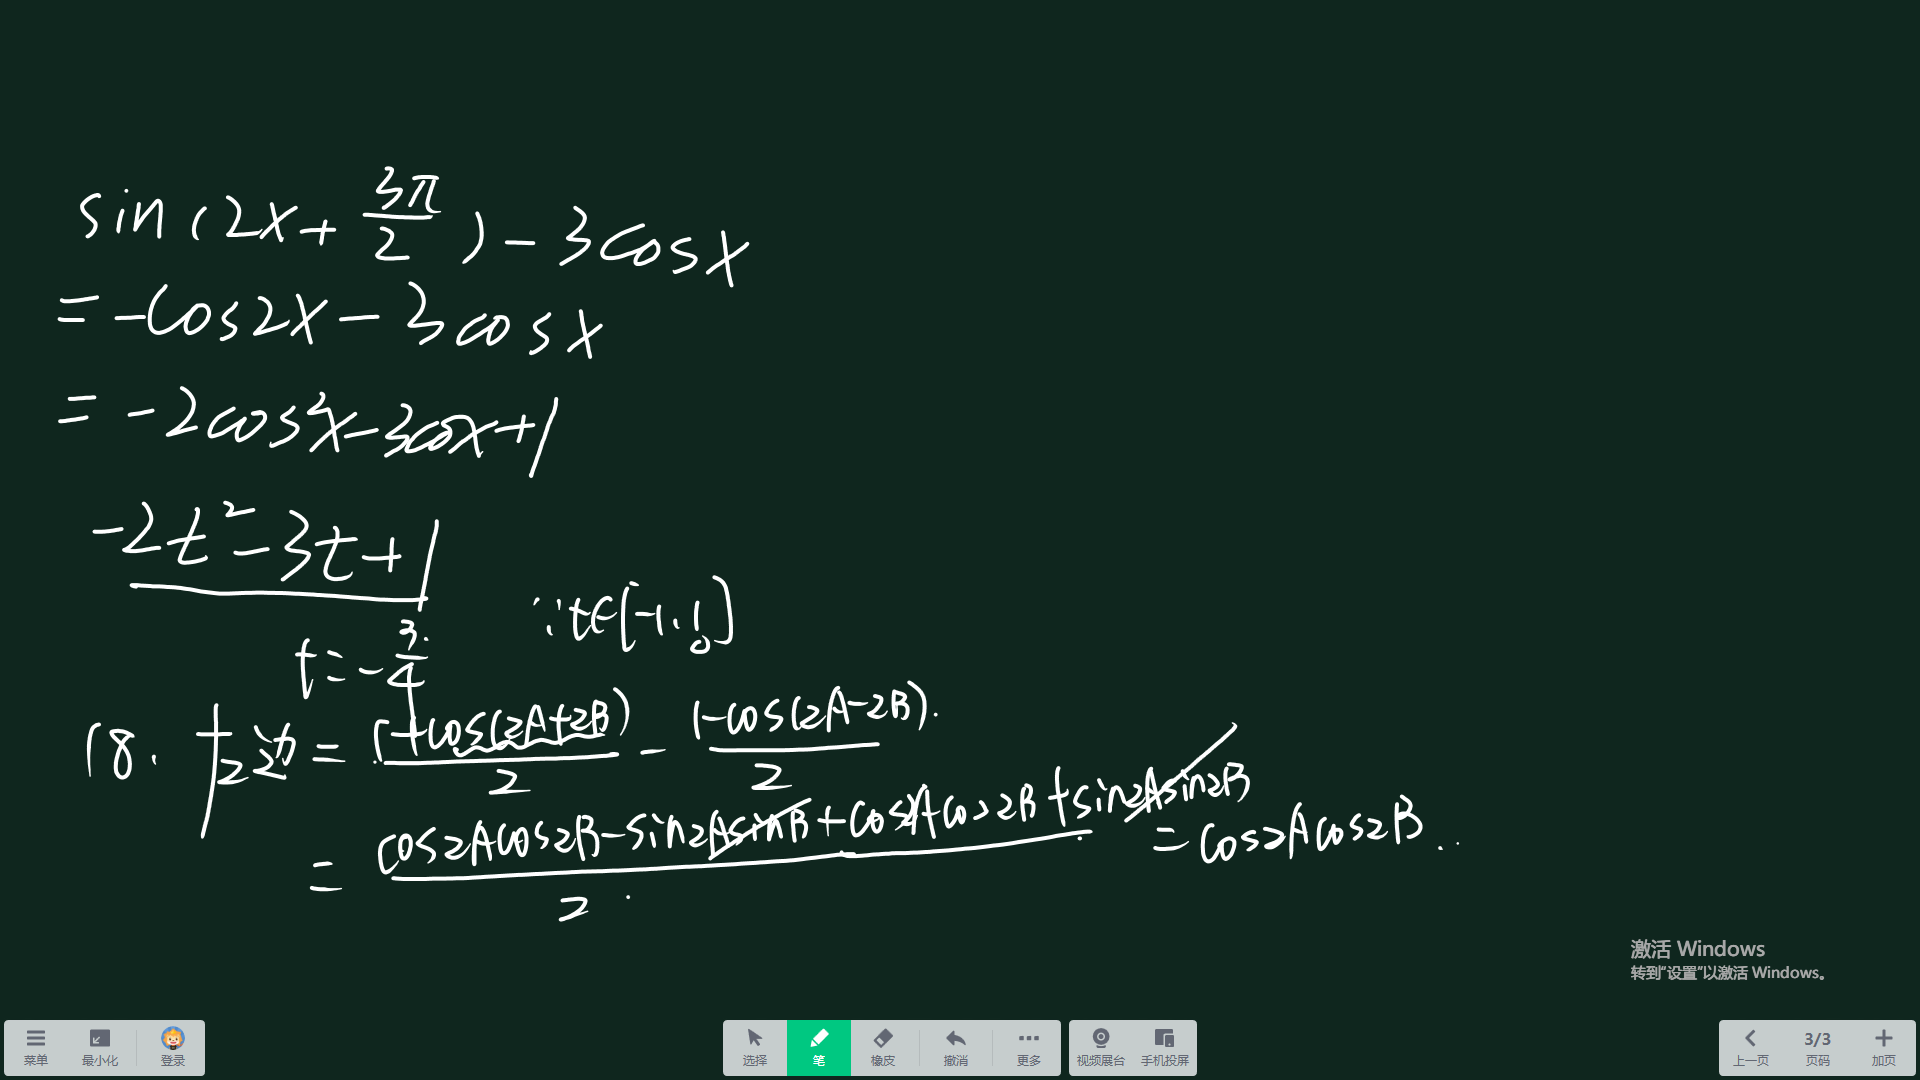 sin(2x+3π/2)-3cosx
=-cos2x-3cosx
=-2cos²x-3cosx+1
-2t²-3t+1
∵t∈[-1,1]
t=-3/4
18. 左边=(1+cos(2A+2B))/2-(1-cos(2A-2B))/2
=(cos2Acos2B-sin2AsinB+cos2Acos2B+sin2Asin2B)/2=cos2Acos2B
激活 Windows
转到"设置"以激活 Windows。
菜单 最小化 登录 选择 笔 橡皮 撤消 更多 视频展台 手机投屏 上一页 3/3 页码 加页